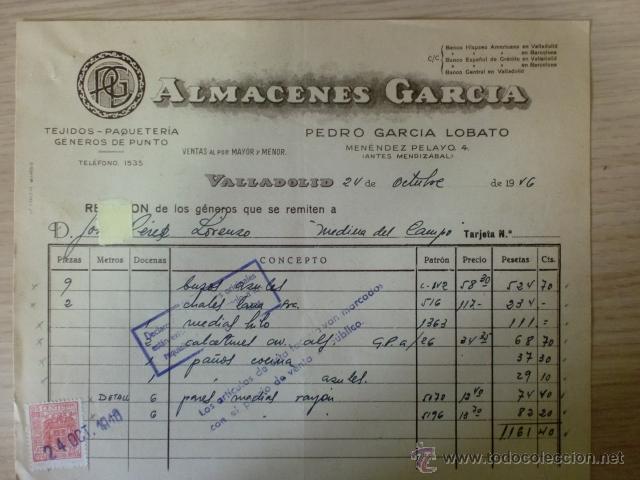 C/C.
Banco Hispano Americano en Valladolid
" " " en Barcelona
Banco Español de Crédito en Valladolid
" " " en Barcelona
Banco Central en Valladolid
PG
ALMACENES GARCIA
TEJIDOS-PAQUETERÍA
GENEROS DE PUNTO
TELÉFONO, 1535
VENTAS AL POR MAYOR Y MENOR.
PEDRO GARCIA LOBATO
MENÉNDEZ PELAYO, 4.
(ANTES MENDIZÁBAL)
VALLADOLID 24 de Octubre de 1946
RE ION de los géneros que se remiten a
D. Jos Pérez Lorenzo Medina del Campo Tarjeta N.º
Piezas Metros Docenas CONCEPTO Patrón Precio Pesetas Cts.
9 buzos azules C-142 58 30 524 70
2 chales lana 516 117- 234 -
medias hilo 1363 111 -
calcetines av. alg. G.P.a/26 34 35 68 70
1 paños cocina 37 30
1 " azules. 29 10
DETALL 6 pares medias rayón 5170 12 40 74 40
6 " " " 5196 13 70 82 20
1161 40
Los artículos de esta factura van marcados
con el precio de venta público.
24 OCT. 1946
www.todocoleccion.net